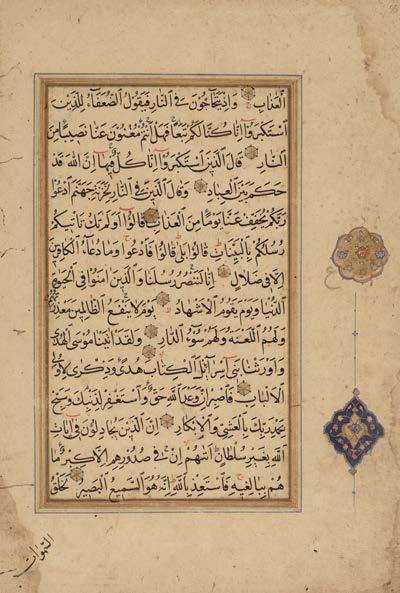 العذاب وإذ يتحاجون في النار فيقول الضعفاء للذين
استكبروا إنا كنا لكم تبعا فهل أنتم مغنون عنا نصيبا من
النار قال الذين استكبروا إنا كل فيها إن الله قد
حكم بين العباد وقال الذين في النار لخزنة جهنم ادعوا
ربكم يخفف عنا يوما من العذاب قالوا أولم تك تأتيكم
رسلكم بالبينات قالوا بلى قالوا فادعوا وما دعاء الكافرين
إلا في ضلال إنا لننصر رسلنا والذين آمنوا في الحيوة
الدنيا ويوم يقوم الأشهاد يوم لا ينفع الظالمين معذرتهم
ولهم اللعنة ولهم سوء الدار ولقد آتينا موسى الهدى
وأورثنا بني إسرائيل الكتاب هدى وذكرى لأولي
الألباب فاصبر إن وعد الله حق واستغفر لذنبك وسبح
بحمد ربك بالعشي والإبكار إن الذين يجادلون في آيات
الله بغير سلطان أتيهم إن في صدورهم إلا كبر ما
هم ببالغيه فاستعذ بالله إنه هو السميع البصير لخلق
السموات